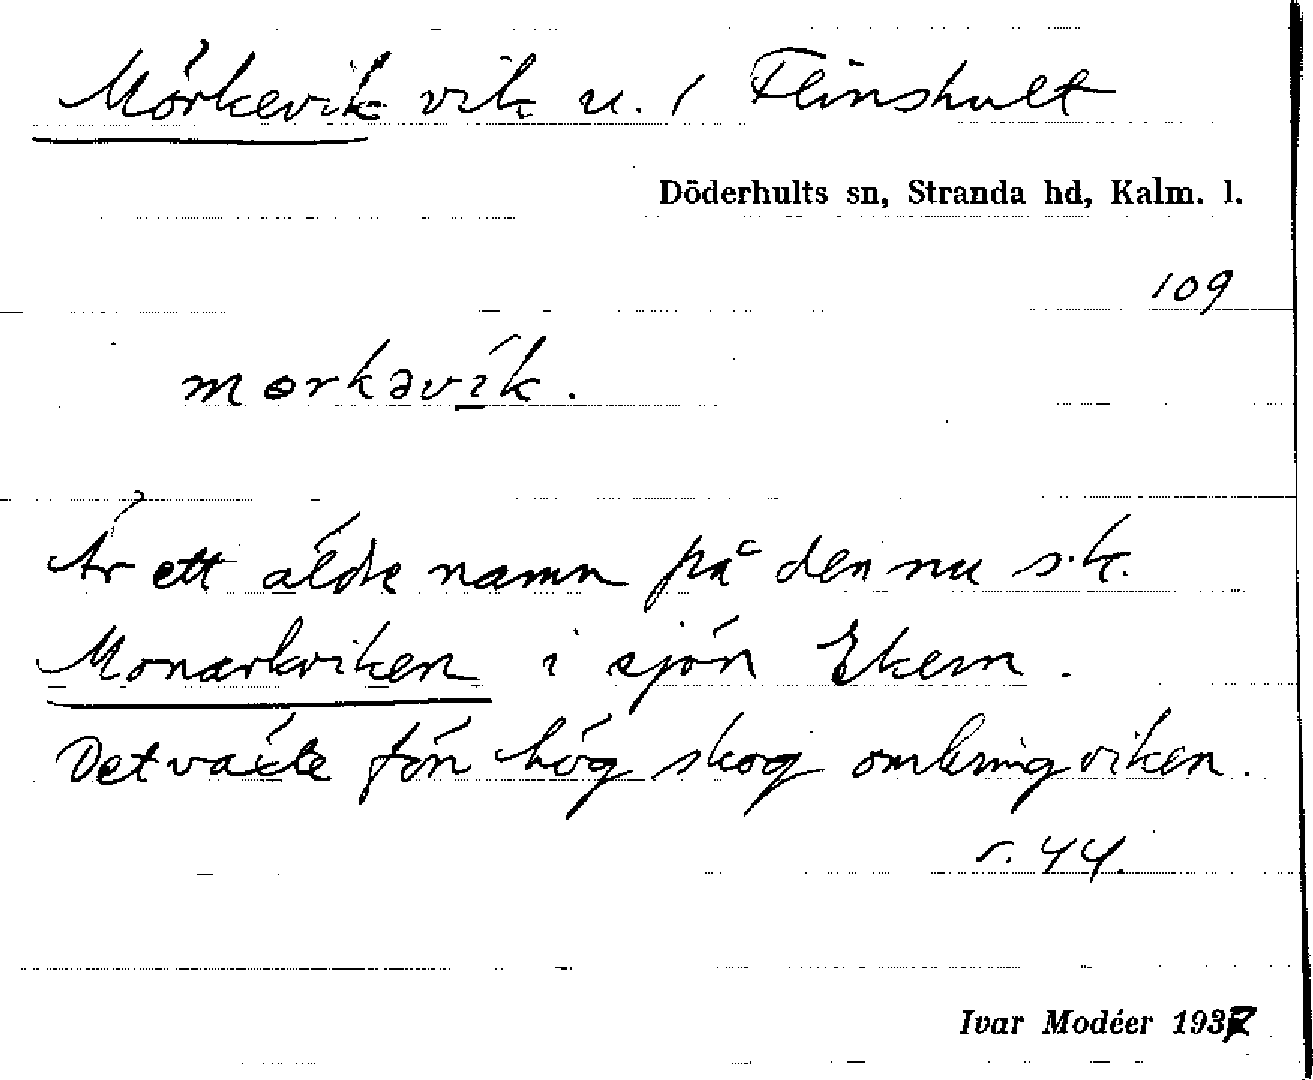 Mörkevik vik u. 1 Flinshult
Döderhults sn, Stranda hd, Kalm. l.
109
mɵrkavík.
Är ett äldre namn på den nu s.k.
Monarkviken i sjön Ekern.
Det växte förr hög skog omkring viken.
s. 44.
Ivar Modéer 1937